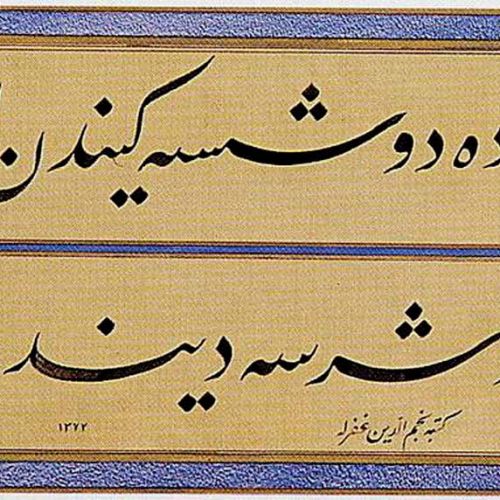 ده دوشسه كیندن
شرسه دیند
كتبه نجم الدین غفرله
١٣٦٢